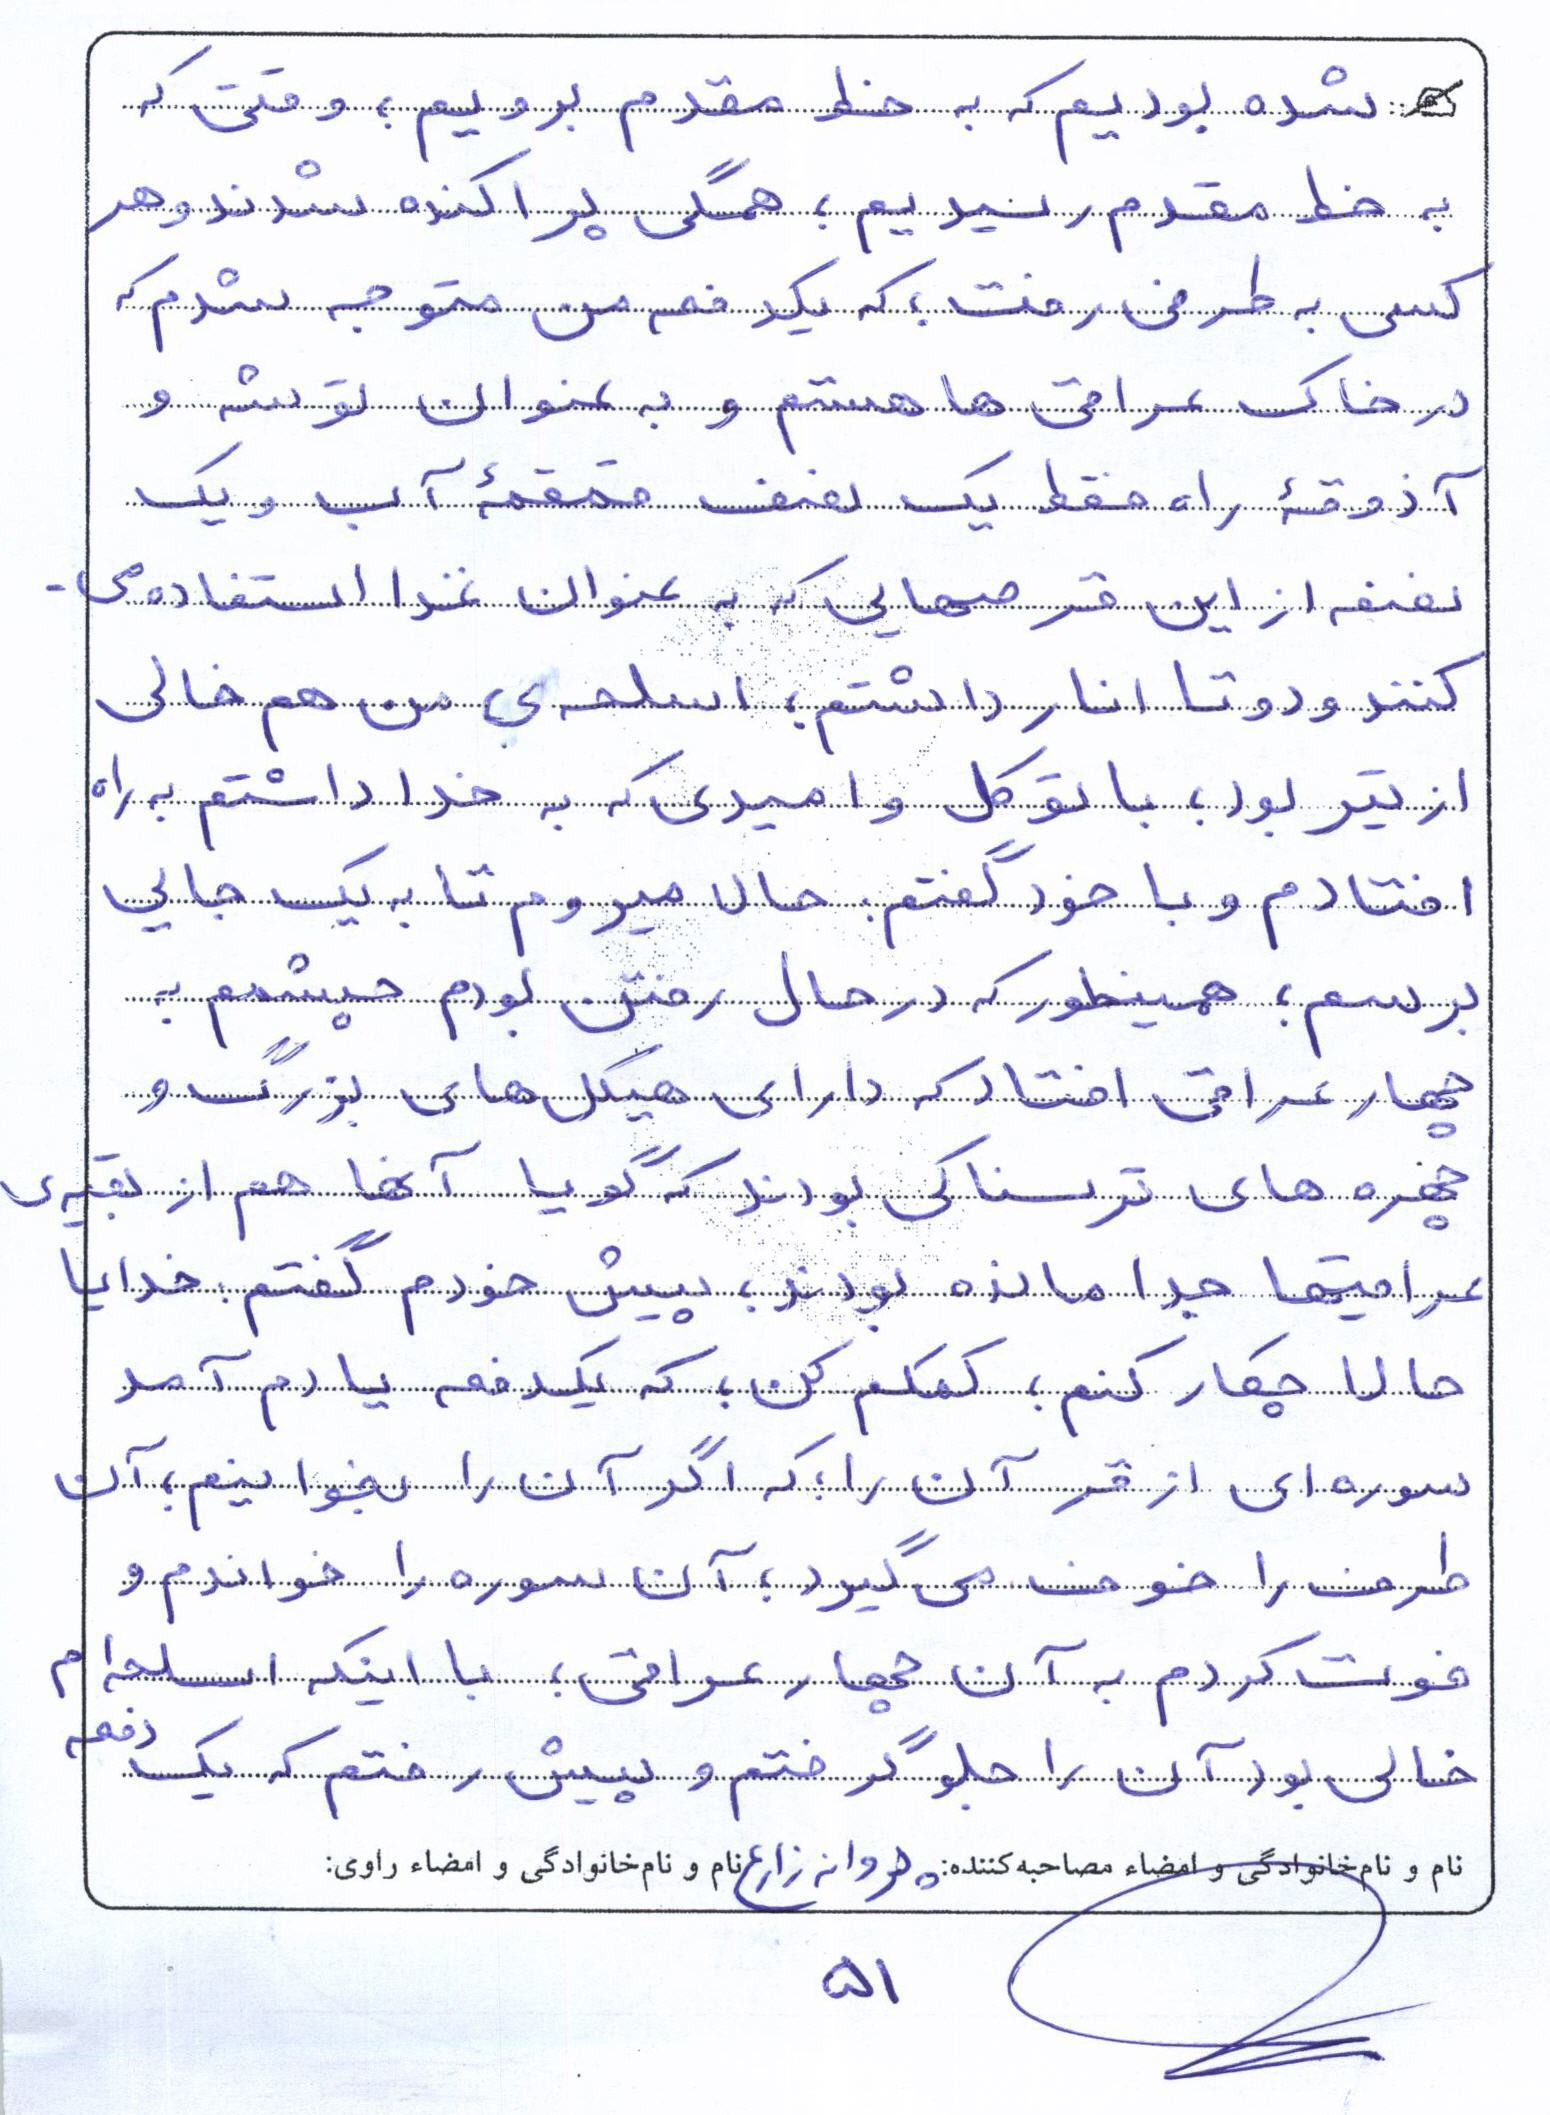 شده بودیم که به خط مقدم برویم؛ وقتی که
به خط مقدم رسیدیم؛ همگی پراکنده شدند و هر
کسی به طرفی رفت؛ که یکدفعه من متوجه شدم که
در خاک عراقی ها هستم و به عنوان توشه و
آذوقۀ راه فقط یک نصف قمقمۀ آب و یک
نصفه از این قرصهایی که به عنوان غذا استفاده می-
کنند و دو تا انار داشتم؛ اسلحه ی من هم خالی
از تیر بود؛ با توکل و امیدی که به خدا داشتم به راه
افتادم و با خود گفتم: حالا میروم تا به یک جایی
برسم؛ همینطور که در حال رفتن بودم چشمم به
چهار عراقی افتاد که دارای هیکل های بزرگ و
چهره های ترسناکی بودند که گویا آنها هم از بقیه ی
عراقیها جدا مانده بودند؛ پیش خودم گفتم: خدایا
حالا چکار کنم؛ کمکم کن؛ که یکدفعه یادم آمد
سوره ای از قرآن را؛ که اگر آن را بخوانیم؛ آن
طرف را خوف می گیرد؛ آن سوره را خواندم و
فوت کردم به آن چهار عراقی؛ با اینکه اسلحه ام
خالی بود آن را جلو گرفتم و پیش رفتم که یک دفعه
نام و نام‌خانوادگی و امضاء مصاحبه‌کننده: پروانه زارع نام و نام‌خانوادگی و امضاء راوی:
۵۱